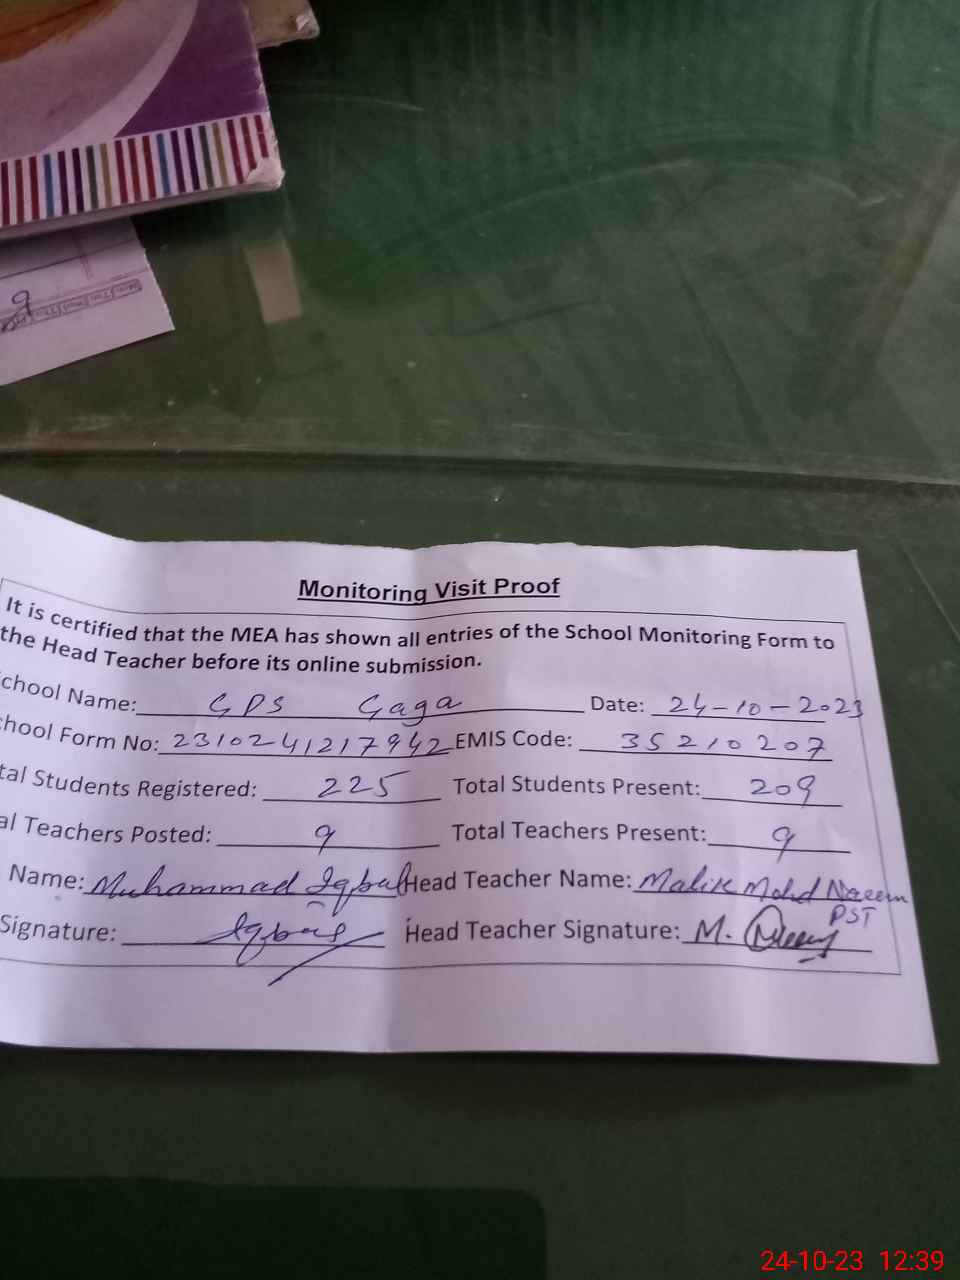 Monitoring Visit Proof
It is certified that the MEA has shown all entries of the School Monitoring Form to
the Head Teacher before its online submission.
chool Name: GPS Gaga Date: 24-10-2023
hool Form No: 2310241217942 EMIS Code: 35210207
tal Students Registered: 225 Total Students Present: 209
al Teachers Posted: 9 Total Teachers Present: 9
Name: Muhammad Iqbal Head Teacher Name: Malik Mohd Naeem
PST
Signature: Iqbal Head Teacher Signature: M. Naeem
24-10-23 12:39